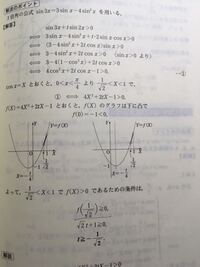 解法のポイント
3倍角の公式 sin3x=3sinx−4sin³x を用いる。
【解答】
sin3x+t sin2x>0
⟺ 3sinx−4sin³x+t·2sinx cosx>0
⟺ (3−4sin²x+2t cosx)sinx>0
⟺ 3−4sin²x+2t cosx>0 (sinx>0 より)
⟺ 3−4(1−cos²x)+2t cosx>0
⟺ 4cos²x+2t cosx−1>0. …①
cosx=X とおくと, 0<x<π/4 より 1/√2<X<1 で,
① ⟺ 4X²+2tX−1>0.
f(X)=4X²+2tX−1 とおくと, f(X) のグラフは下に凸で
f(0)=−1<0.
y=f(X)
y=f(X)
よって, 1/√2<X<1 で f(X)>0 であるための条件は,
f(1/√2)≧0,
√2 t+1≧0,
t≧−1/√2
解説